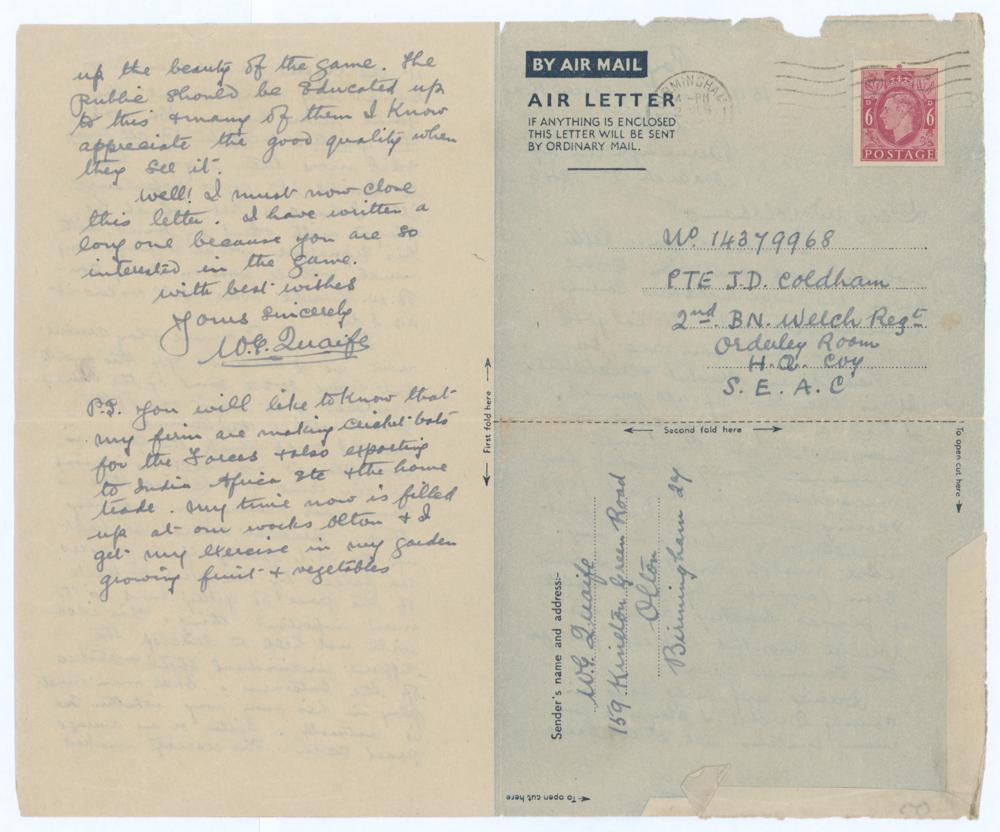 up the beauty of the game. The
public should be educated up
to this + many of them I know
appreciate the good quality when
they see it.
Well! I must now close
this letter. I have written a
long one because you are so
interested in the game.
With best wishes
Yours sincerely
W.G. Quaife
P.S. You will like to know that
my firm are making cricket bats
for the Forces + also exporting
to India Africa etc + the home
trade. My time now is filled
up at our works Olton + I
get my exercise in my garden
growing fruit + vegetables
BY AIR MAIL
AIR LETTER
IF ANYTHING IS ENCLOSED
THIS LETTER WILL BE SENT
BY ORDINARY MAIL.
6 D D 6
POSTAGE
No. 14379968
PTE J.D. Coldham
2nd BN. Welch Regt
Orderley Room
H.Q. Coy
S.E.A.C
First fold here
Second fold here
To open cut here
Sender's name and address:-
W.G. Quaife
159 Kineton Green Road
Olton
Birmingham 27
To open cut here